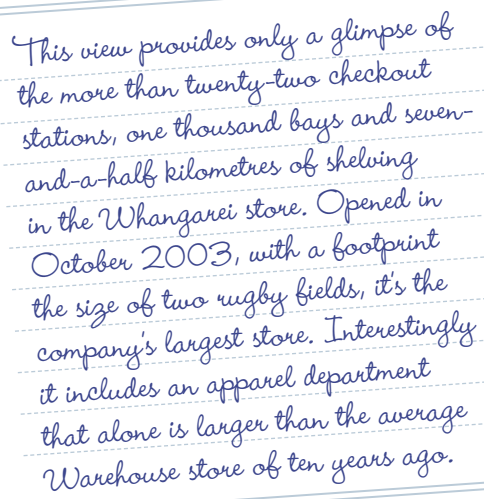 This view provides only a glimpse of
the more than twenty-two checkout
stations, one thousand bays and seven-
and-a-half kilometres of shelving
in the Whangarei store. Opened in
October 2003, with a footprint
the size of two rugby fields, it's the
company's largest store. Interestingly
it includes an apparel department
that alone is larger than the average
Warehouse store of ten years ago.